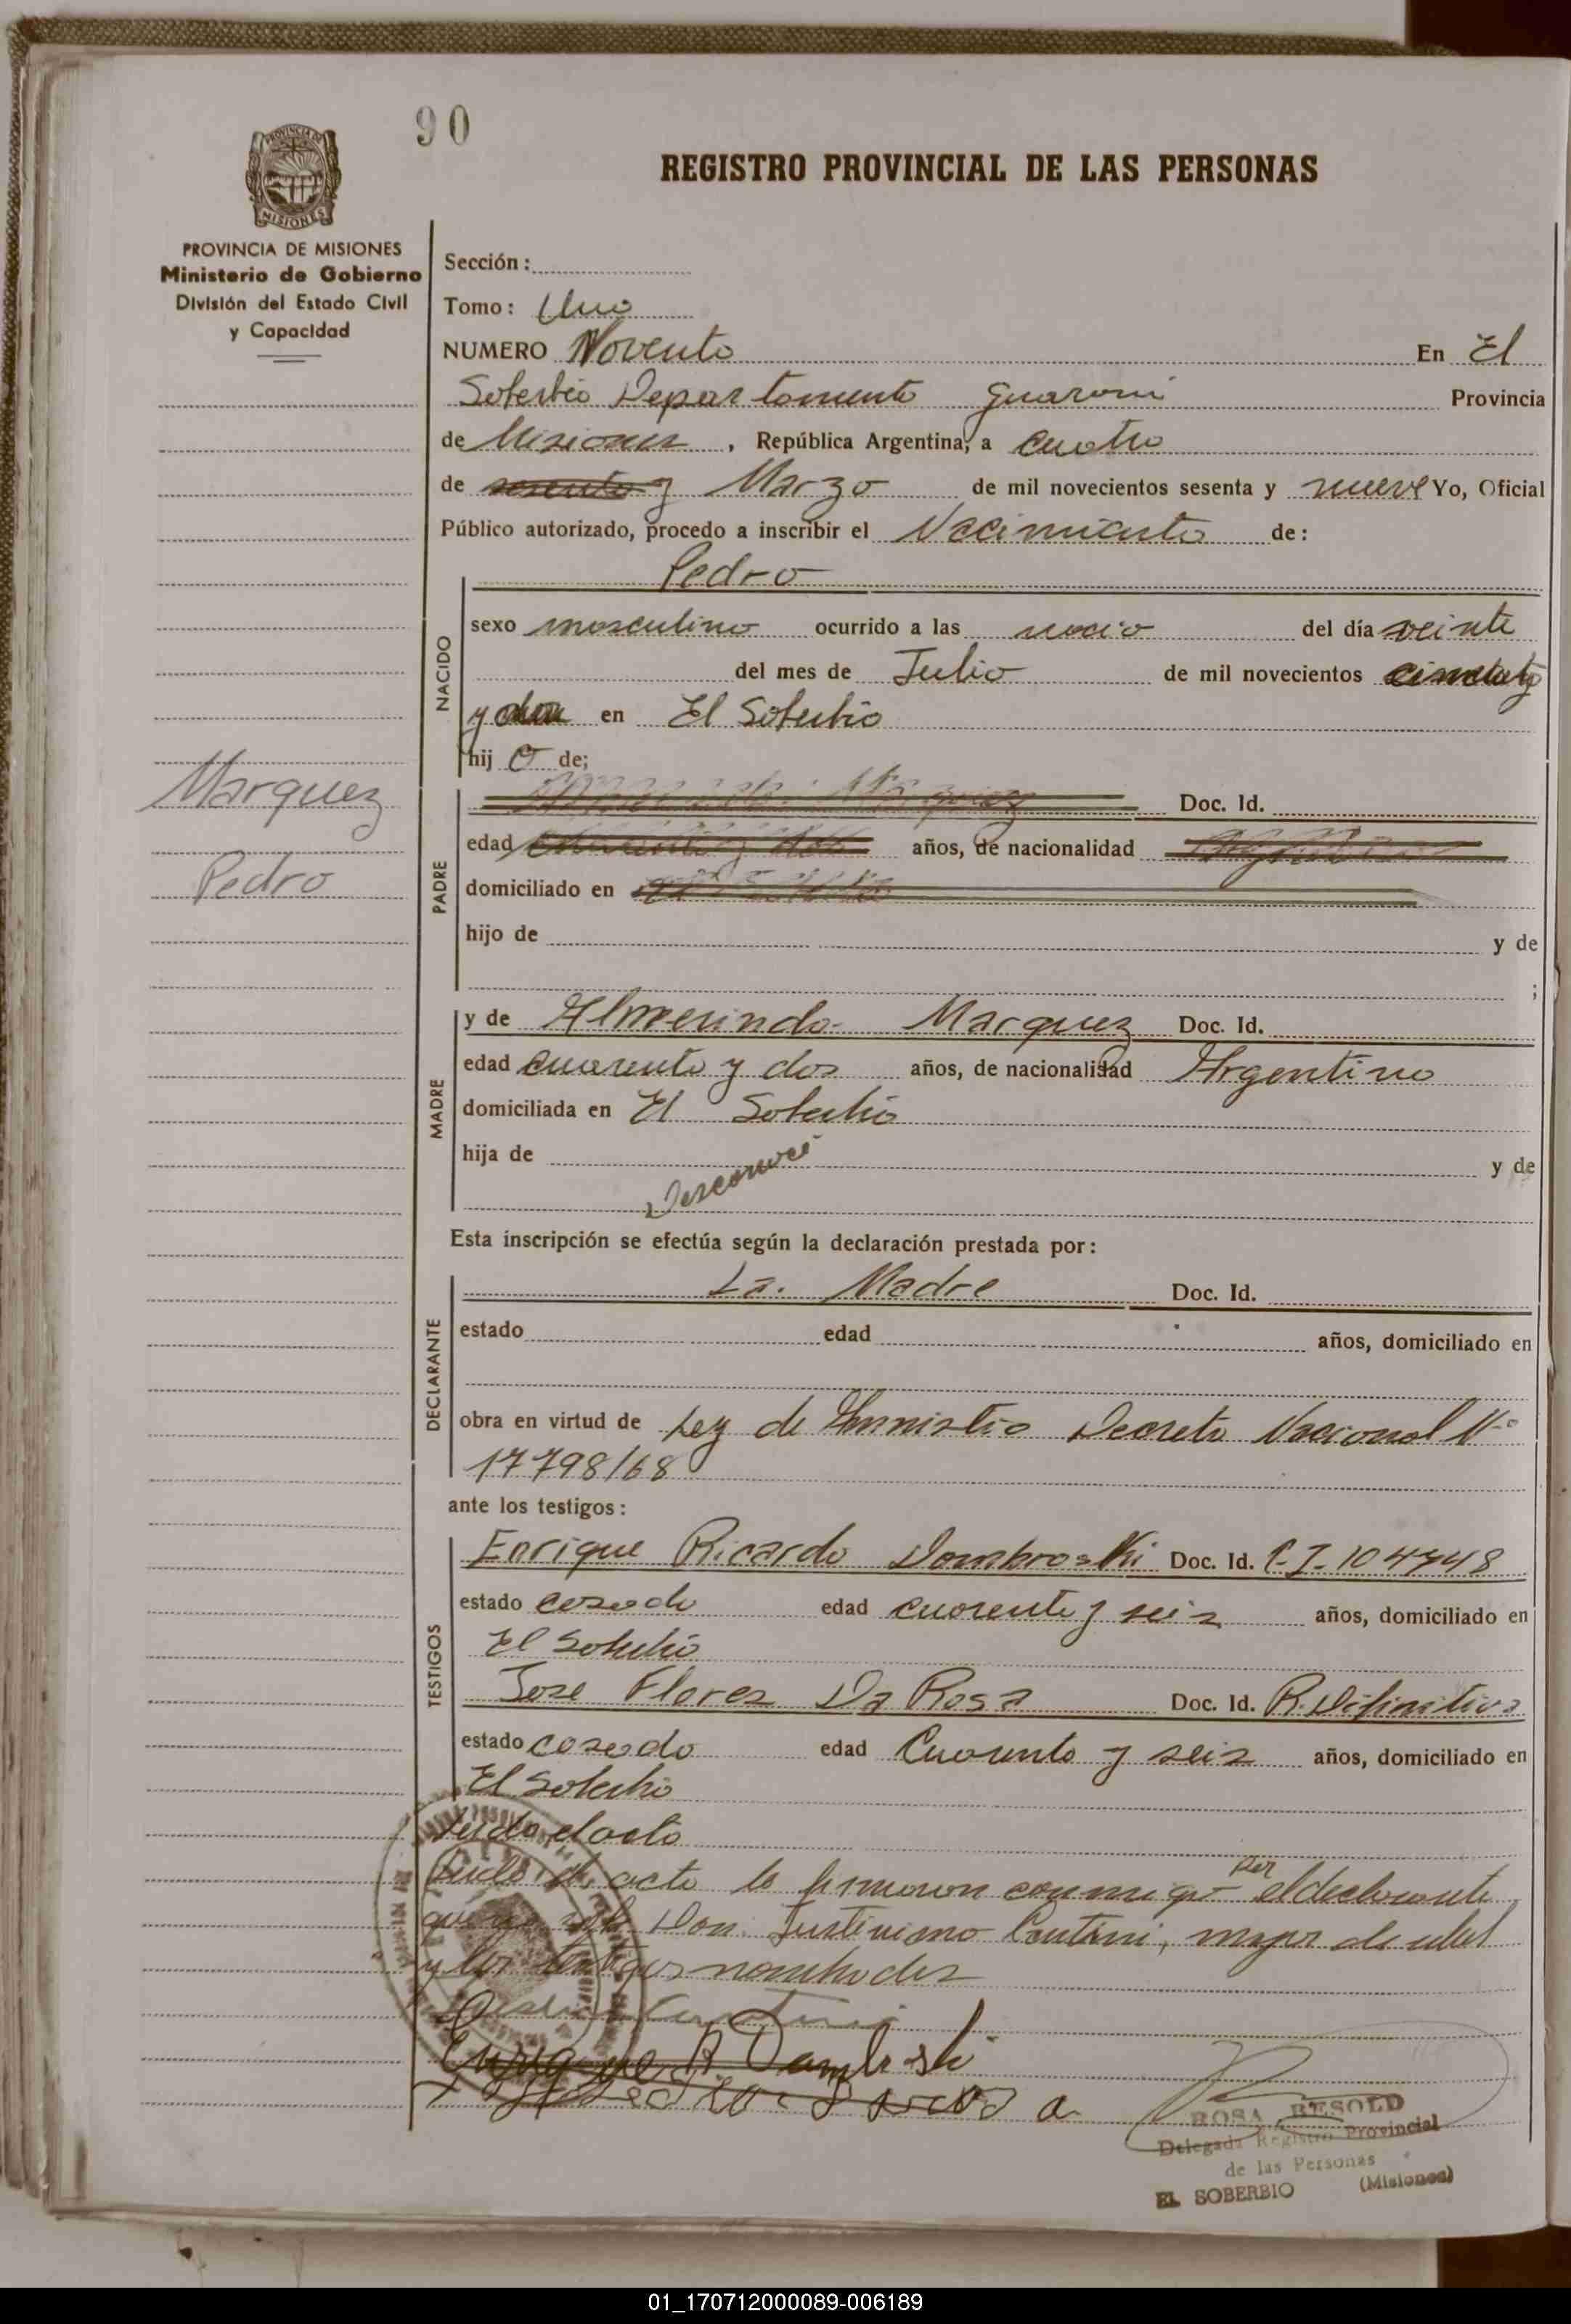 90
REGISTRO PROVINCIAL DE LAS PERSONAS
PROVINCIA DE MISIONES
MISIONES
PROVINCIA DE MISIONES
Ministerio de Gobierno
División del Estado Civil
y Capacidad
Sección:
Tomo: Uno
NUMERO Noventa En El
Soberbio Departamento Guarani Provincia
de Misiones, República Argentina, a cuatro
de sesenta y Marzo de mil novecientos sesenta y nueve Yo, Oficial
Público autorizado, procedo a inscribir el Nacimiento de:
Pedro
NACIDO
sexo masculino ocurrido a las del día veinte
del mes de Julio de mil novecientos
y en El Soberbio
hijo de;
Marquez
Pedro
PADRE
Doc. Id.
edad años, de nacionalidad
domiciliado en
hijo de y de
;
MADRE
y de Almerinda Marquez Doc. Id.
edad cuarenta y dos años, de nacionalidad Argentina
domiciliada en El Soberbio
hija de y de
Desconoce
Esta inscripción se efectúa según la declaración prestada por:
DECLARANTE
La Madre Doc. Id.
estado edad años, domiciliado en
obra en virtud de Ley de Amnistia Decreto Nacional Nº
17798/68
ante los testigos:
TESTIGOS
Enrique Ricardo Dombroski Doc. Id. C.I. 104748
estado casado edad cuarenta y seis años, domiciliado en
El Soberbio
Jose Flores Da Rosa Doc. Id. R. Difinitiva
estado casado edad Cuarenta y seis años, domiciliado en
El Soberbio
Leida el acta
Leida el acta la firmaron conmigo por el declarante
que no sabe Don. Justiniano Centurion, mayor de edad
y los testigos nombrados
ROSA RESOLD
Delegada Registro Provincial
de las Personas
EL SOBERBIO (Misiones)
01_170712000089-006189